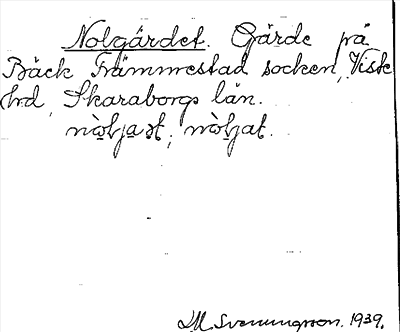 Nolgärdet. Gärde på
Bäck Främmestad socken, Viste
hd, Skaraborgs län.
Svenungsson. 1939.